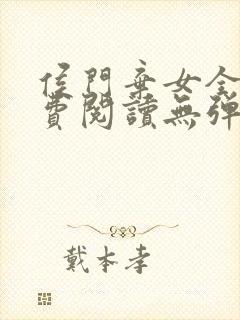 侯門棄女全
費閱讀無彈
戴本孝